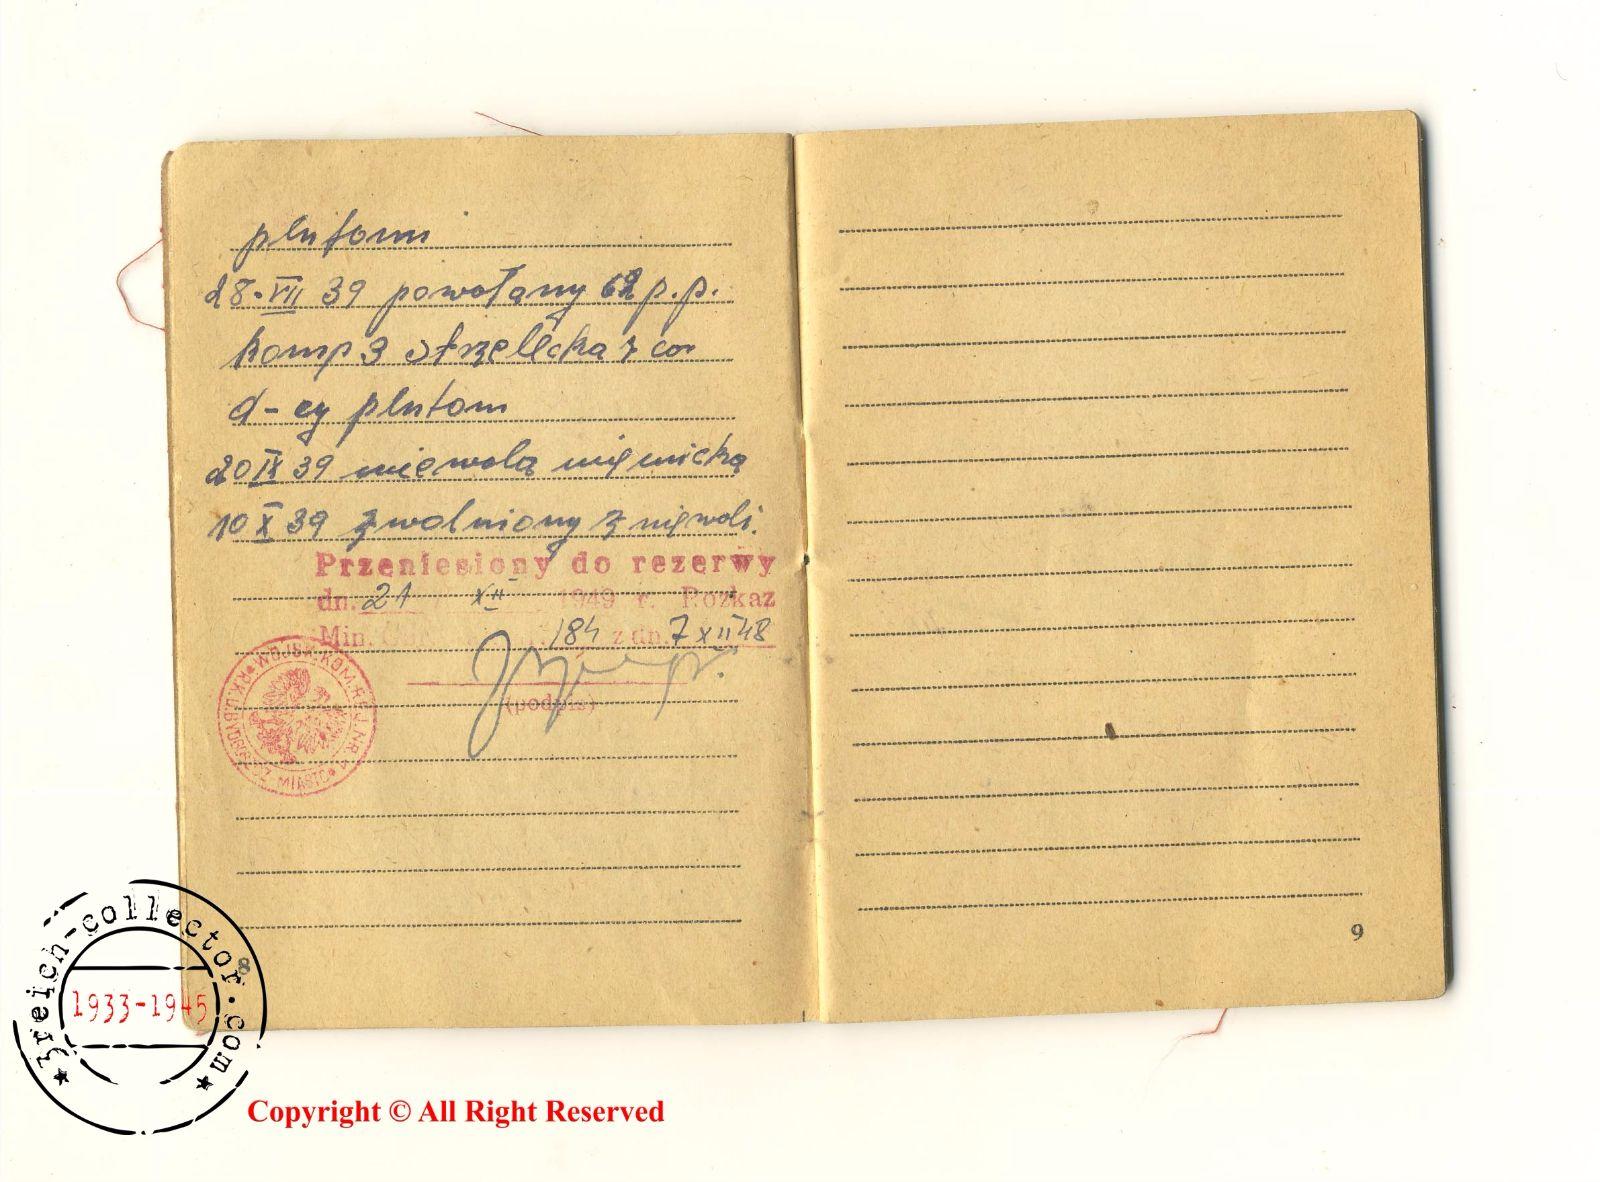 plutonu
28.VII 39 powołany 62 p.p.
komp 3 strzelecka z-ca
d-cy pluton
20 IX 39 niewola niemiecka
10 X 39 zwolniony z niewoli.
Przeniesiony do rezerwy
dn. 21 XII 1949 r. Rozkaz
Min. 184 z dn. 7 XII 48
(podpis)
WOJSK. KOM. REJ. NR 1
R.K.U. BYDGOSZCZ-MIASTO
8
9
3reich-collector.com
1933-1945
Copyright © All Right Reserved